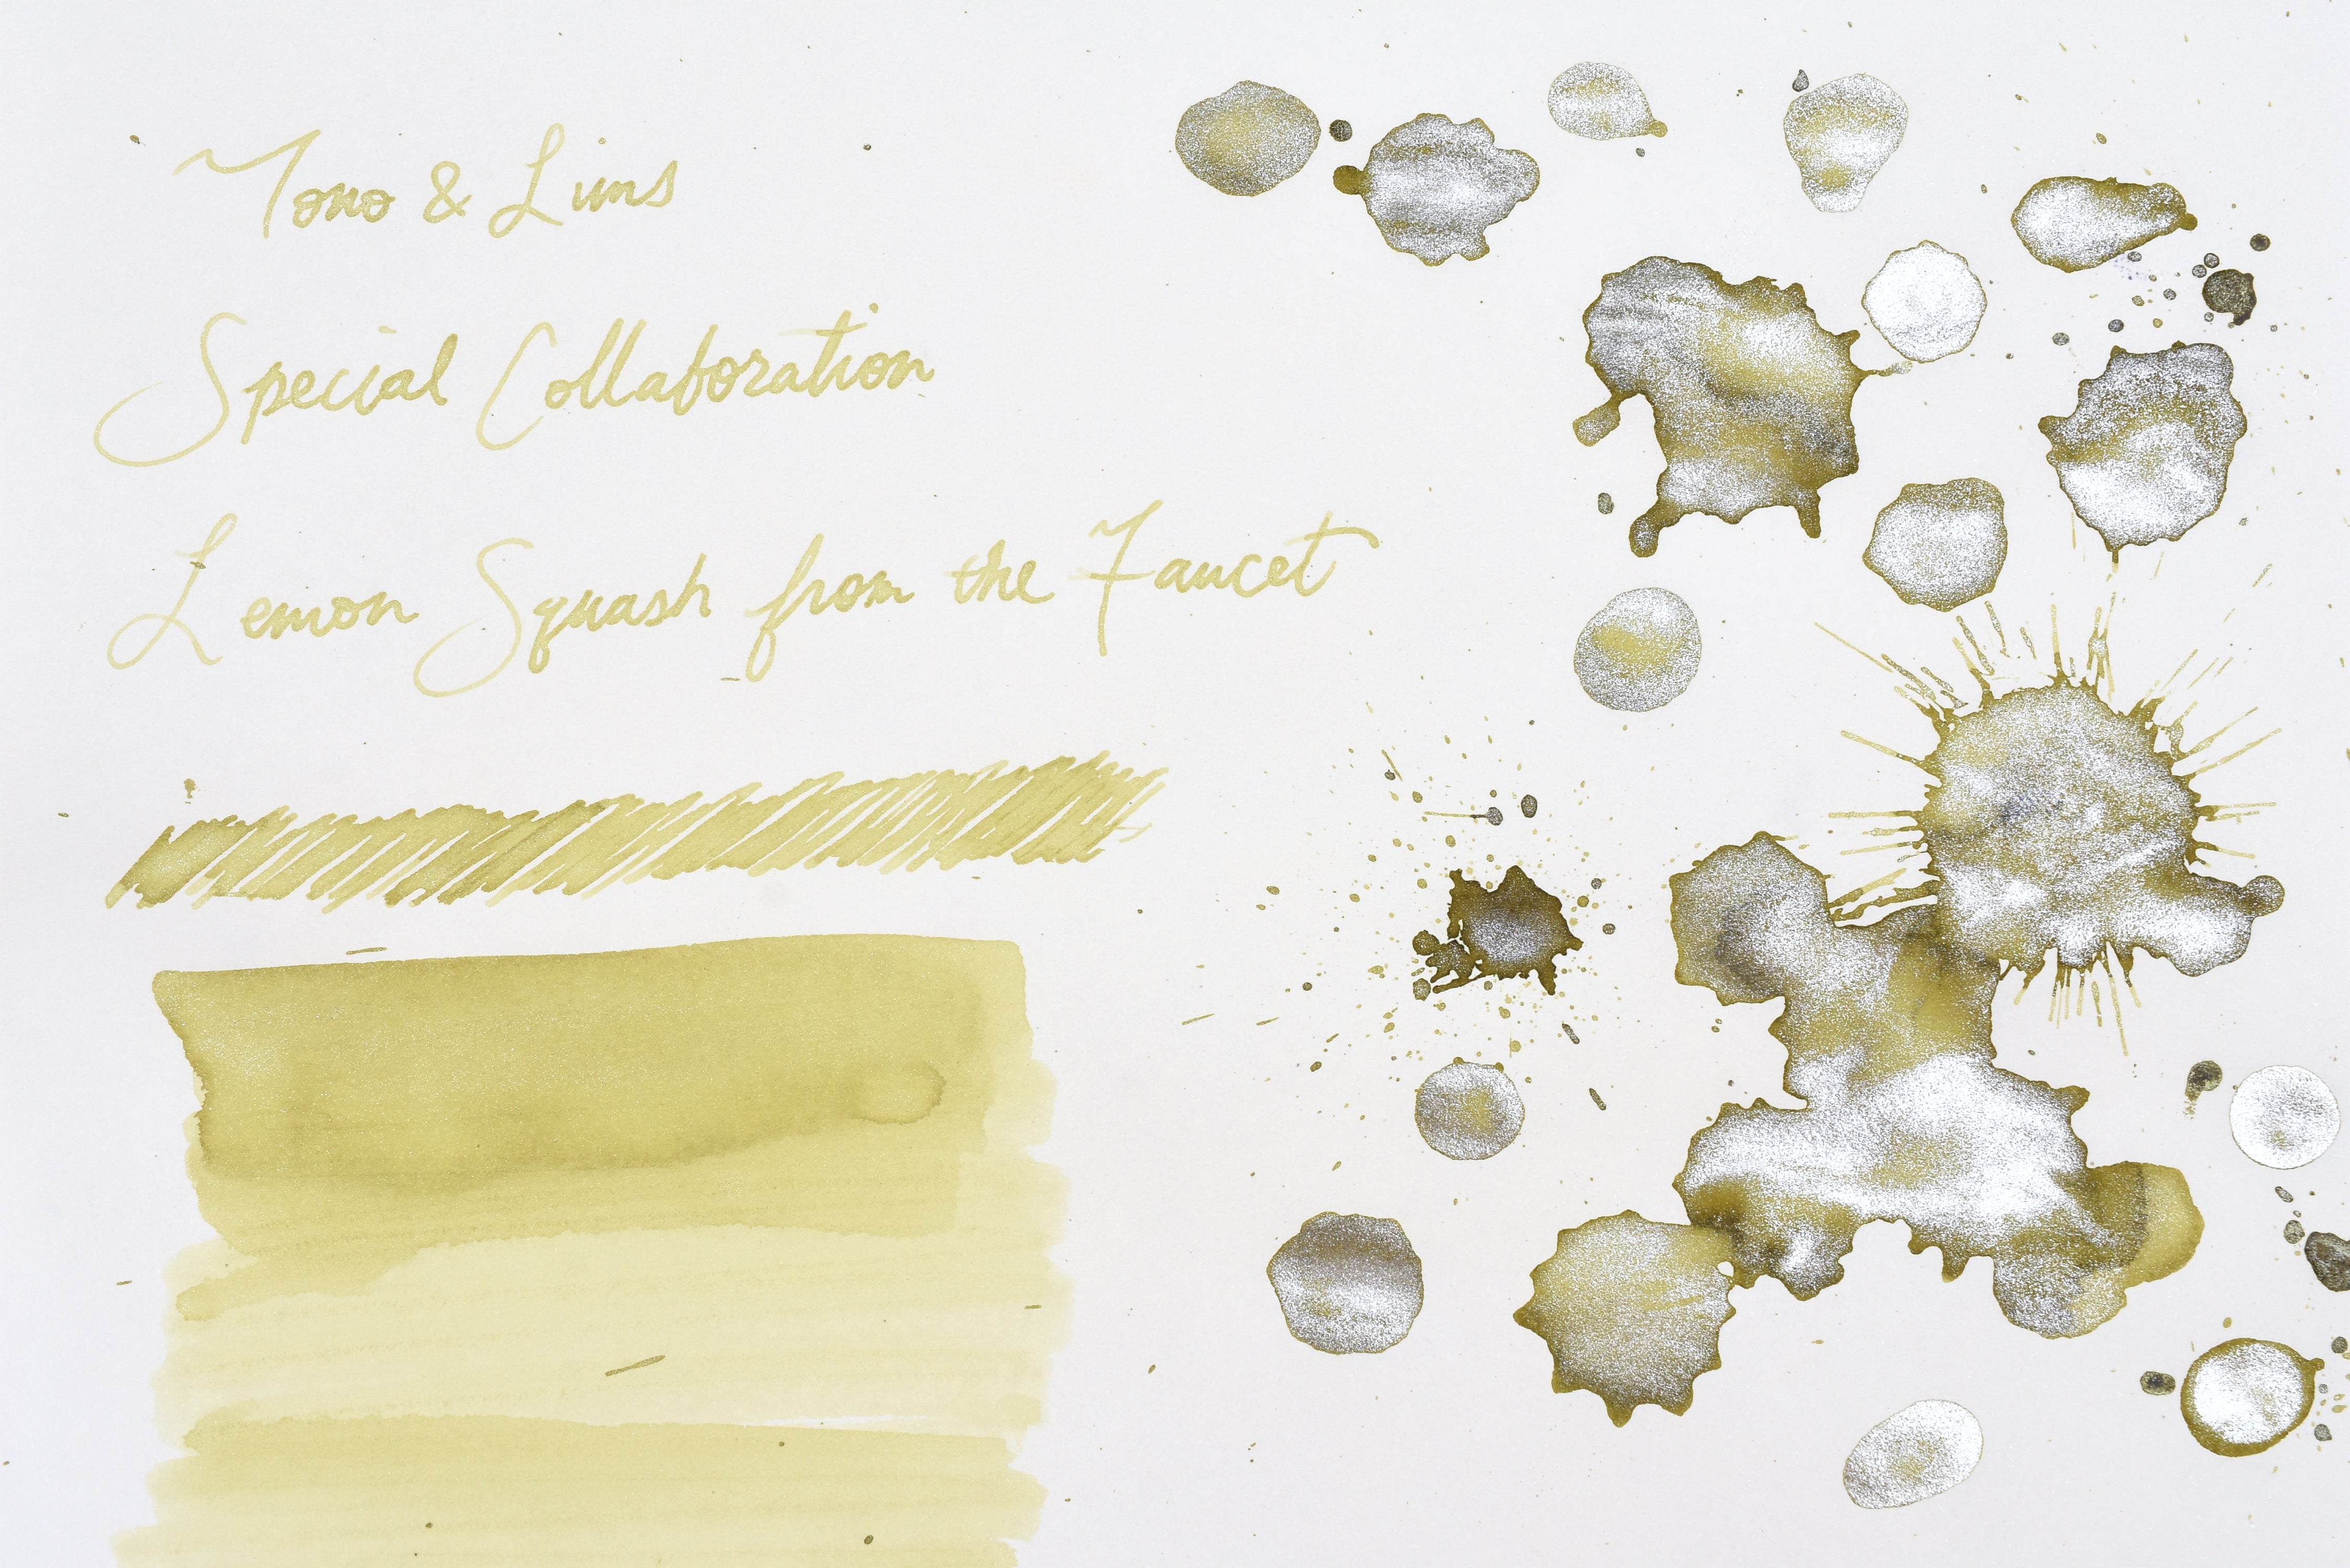 Tono & Lims
Special Collaboration
Lemon Squash from the Faucet